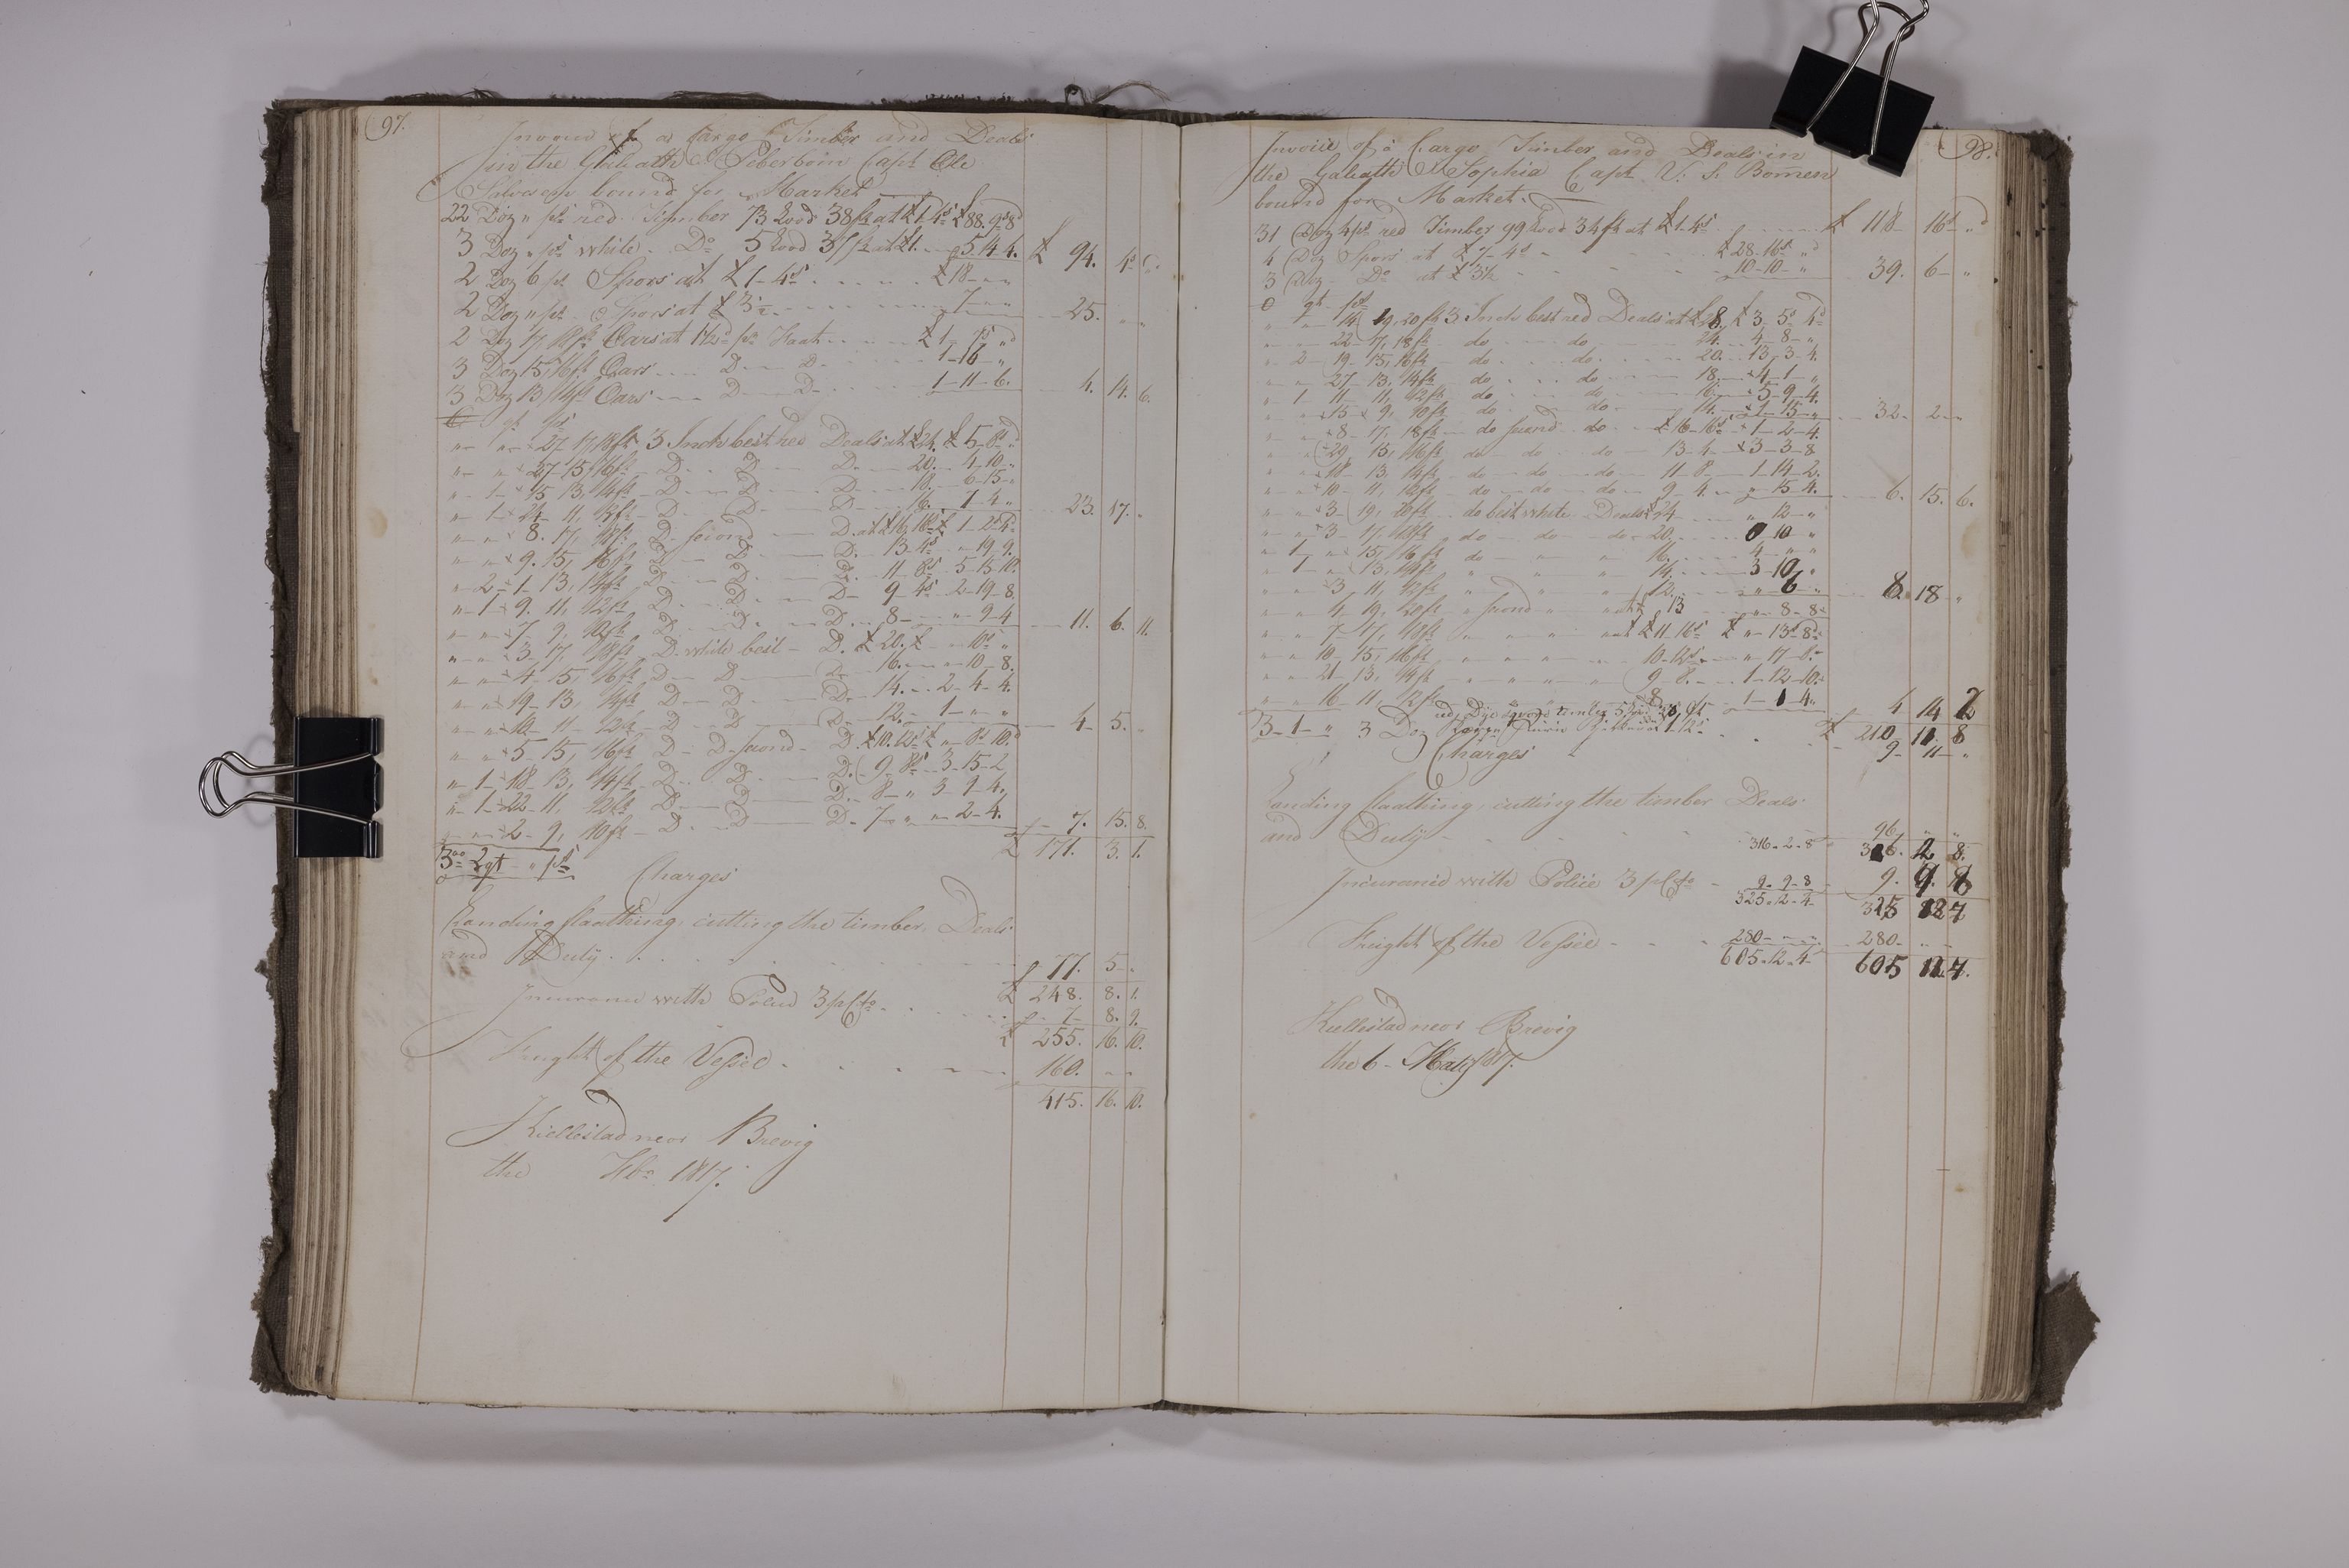 97.
Invoice of a Cargo Timber and Deals
in the Galeath Capt Ole
bound for Market
22 Doz " ps red Timber 73 Lood 38 ft at £1-4s £88.9s8d
3 Doz " ps white Do 5 Lood 37 ft at £1. 5.14.4. £ 94. 4s
2 Doz 6 ps Spors at £7-4s £18- " "
2 Doz " ps Spors at £3½ 7- " " 25. " "
2 Doz 17, 18 ft Oars at ps £1- 7s "d
3 Doz 15, 16 ft Oars D. D. 1-16 "
3 Doz 13, 14 ft Oars D. D. 1-11-6. 4. 14. 6.
C qt ps
" " 27 17, 18 ft 3 Inch best red Deals at £24. £5-8s "d
" " 27 15, 16 ft D. D. D. 20. 4-10 "
" 1- 15 13, 14 ft D. D. D. 18. 6-15 "
" 1- 24 11, 12 ft D. D. D. 16. 7-4 " 23. 17. "
" " 8. 17, 18 ft D. second D. at £16.16s £1-2s4d
" " 9. 15, 16 ft D. D. D. 13-4s " 19.9.
" 2- 1- 13, 14 ft D. D. D. 11-8s 5-15-10.
" 1- 9. 11, 12 ft D. D. D- 9-4s 2-19-8.
" " 7- 9, 10 ft D. D. D. 8- " " 9-4 11. 6. 11.
" " 3- 17, 18 ft D. white best D. £20. £ " 10s "
" " 4- 15, 16 ft D D D. 16. " 10-8.
" " 19- 13, 14 ft D. D. D. 14. 2-4-4.
" " 10- 11- 12 ft D. D D. 12. 1- " " 4- 5. "
" " 5- 15, 16 ft D- D- second- D. £10.12s £ " 8s 10d
" 1- 18- 13, 14 ft D. D. D. 9-8s 3-15-2
" 1- 22- 11, 12 ft D. D. D. 8- " 3-9-4.
" " 2- 9, 10 ft D. D D- 7- " " 2-4. 7. 15. 8.
3 C 2 qt " ps £ 171. 3. 1.
Charges
Landing flaathing, cutting the timber, Deals
and Duty 77. 5- "
£ 248. 8. 1.
Insurance with Police 3 pCto 7- 8. 9.
£ 255. 16. 10.
Freight of the Vessel 160. " "
415. 16. 10.
Kiellestad near Brevig
the Febr 1817.
98.
Invoice of a Cargo Timber and Deals in
the Galeath Sophia Capt V: S: Bomen
bound for Market.
31 Doz 4 ps red Timber 99 Lood 34 ft at £1-4s £ 118- 16s "d
4 Doz Spors at £7-4s £28-16s "d
3 Doz Do at £3½ 10-10- " 39. 6- "
C qt ps
" " 14 19, 20 ft 3 Inch best red Deals at £28, £3-5s 4d
" " 22- 17, 18 ft do do 24. 4-8- "
" 2- 19 15, 16 ft do do 20. 13-3-4.
" " 27- 13, 14 ft do do 18. 4-1- "
" 1- 11- 11, 12 ft do do 16. 5-9-4.
" " 15- 9, 10 ft do do 14. 1-15- " 32- 2- "
" " 8- 17, 18 ft do second do £16-16s 1-2-4.
" " 29 15, 16 ft do do do 13-4- 3-3-8
" " 18 13, 14 ft do do do 11 8 1-14-2.
" " 10- 11, 12 ft do do do 9-4. " 15-4. 6. 15. 6.
" " 3 19, 20 ft do best white Deals £24 " 12- "
" " 3- 17, 18 ft do do do 20. 10 "
" 1- " 15, 16 ft do " " 16. 4- " "
" 1- " 13, 14 ft " " " 14. 3-10 "
" " 3 11, 12 ft " " " 12. " 6 " 8. 18 "
" " 4 19, 20 ft " second " at £13 " 8-8
" " 7- 17, 18 ft " " " at £11-16s £ " 13s 8d
" " 10 15, 16 ft " " " 10-12s " 17-8
" " 21 13, 14 ft " " " 9-8. 1-12-10.
" " 16 11, 12 ft " " 8 1-1-4. 4 14 2
3- 1- " £ 210 11. 8
3 Doz 9- 11- "
Charges
Landing flaathing, cutting the timber Deals
and Duty 96. " "
316-2-8 316. 2 8.
Insurance with Police 3 pCto 9-9-8 9. 9. 8
325-12-4- 325 12 4
Freight of the Vessel 280- " " 280- " "
605-12-4- 605 12 4.
Kiellestad near Brevig
the 6- May 1817.